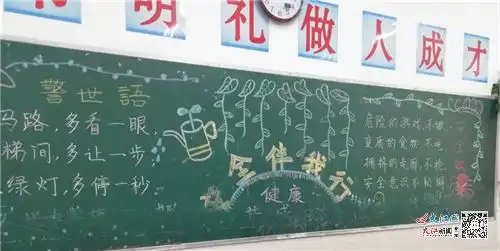 明礼做人成才
警世語
马路,多看一眼,
梯间,多让一步,
绿灯,多停一秒,
全伴我行
健康
危险的游戏,不做
的食物,不吃
拥挤的走廊,不抢
安全意识不松懈
安全
大江网
大江新闻